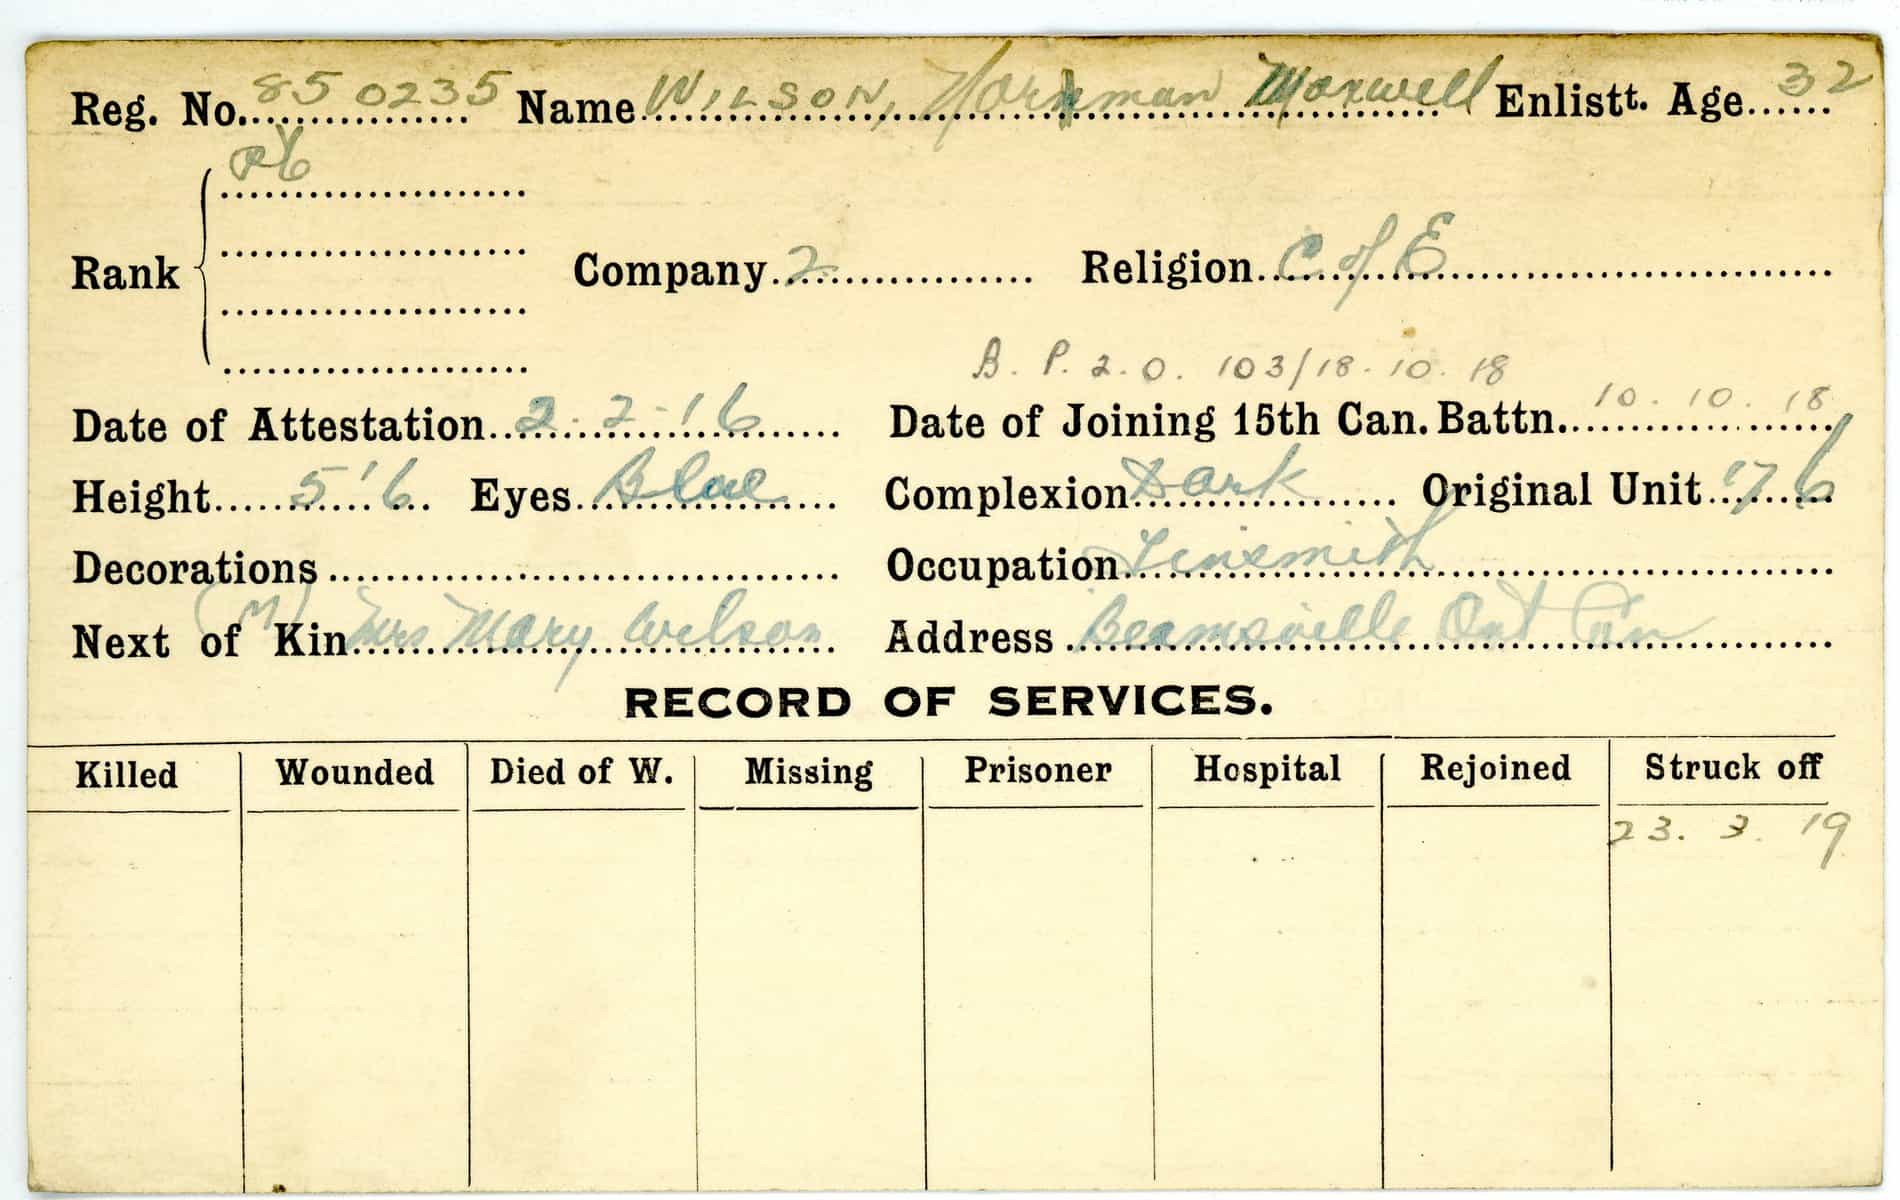 Reg. No. 850235 Name WILSON, Norman Maxwell Enlistt. Age 32
Rank Pte
Company 2 Religion C of E
B. P. 2. O. 103/18.10.18
Date of Attestation 2-2-16 Date of Joining 15th Can. Battn. 10.10.18
Height 5'6 Eyes Blue Complexion Dark Original Unit 176
Decorations Occupation Tinsmith
Next of Kin (M) Mrs Mary Wilson Address Beamsville Ont Can
RECORD OF SERVICES.
Killed Wounded Died of W. Missing Prisoner Hospital Rejoined Struck off
23. 3. 19